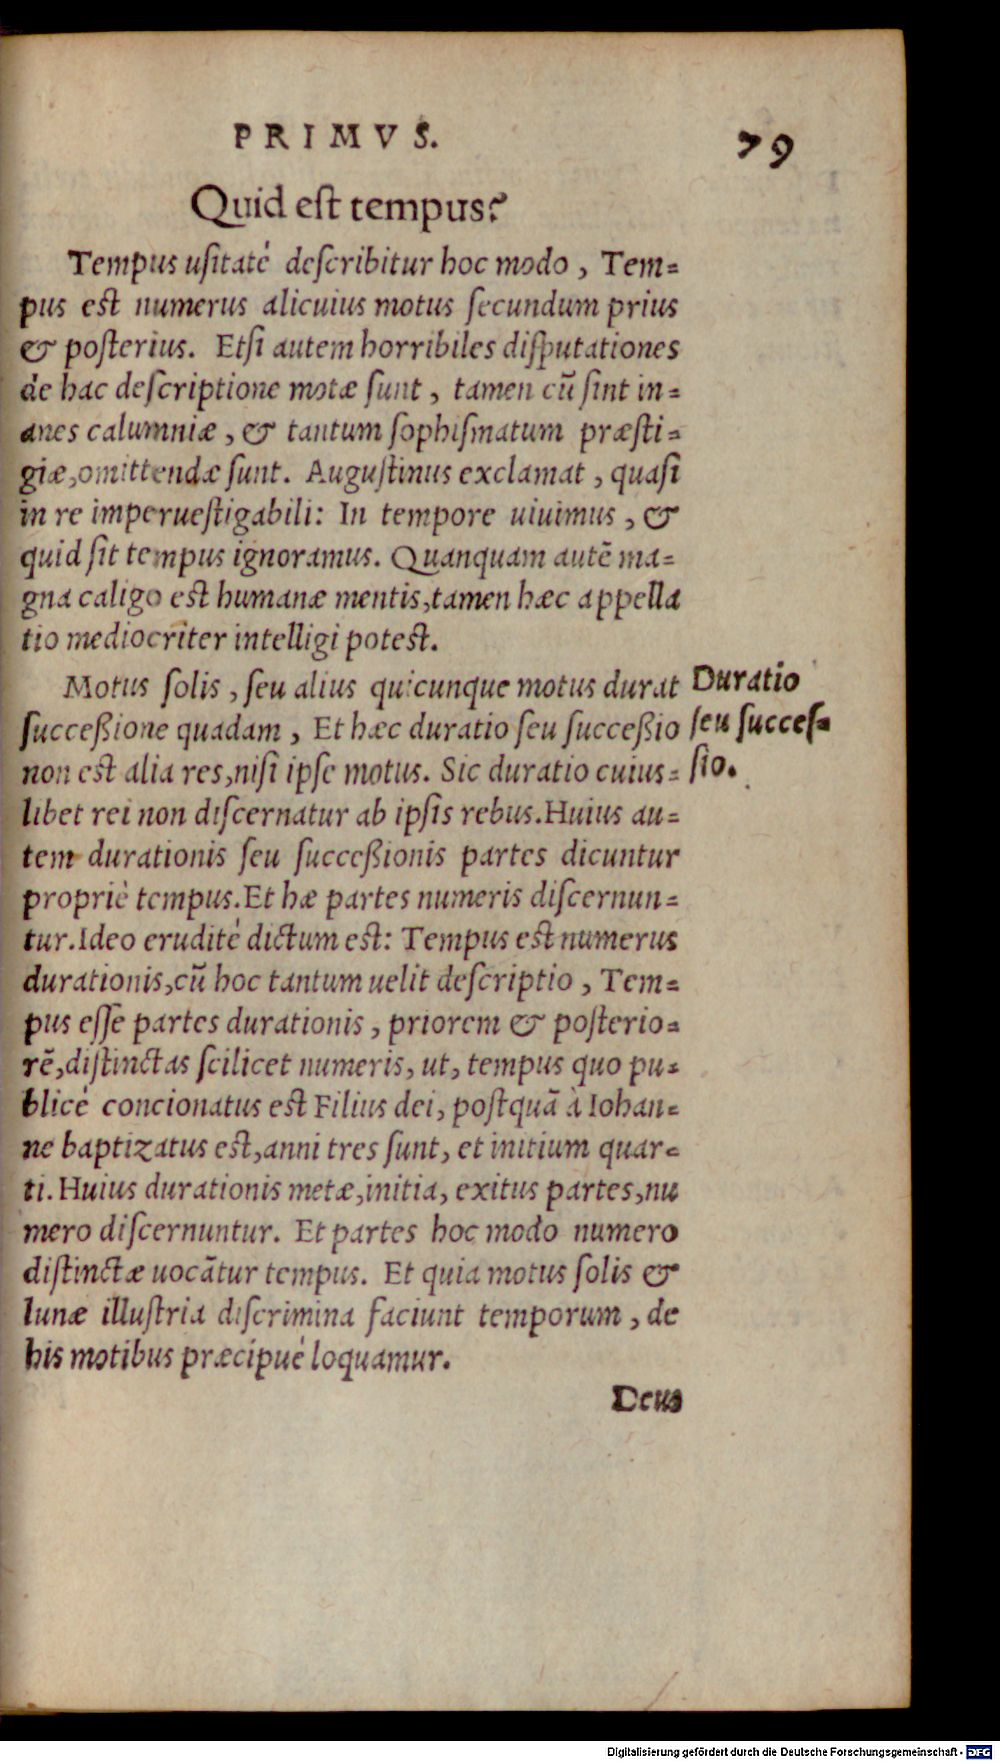 PRIMVS.
79
Quid est tempus?
Tempus usitaté describitur hoc modo, Tem=
pus est numerus alicuius motus secundum prius
& posterius. Etsi autem horribiles disputationes
de hac descriptione motæ sunt, tamen cū sint in=
anes calumniæ, & tantum sophismatum præsti=
giæ, omittendæ sunt. Augustinus exclamat, quasi
in re imperuestigabili: In tempore uiuimus, &
quid sit tempus ignoramus. Quanquam autē ma=
gna caligo est humanæ mentis, tamen hæc appella
tio mediocriter intelligi potest.
Motus solis, seu alius quicunque motus durat
succeßione quadam, Et hæc duratio seu succeßio
non est alia res, nisi ipse motus. Sic duratio cuius=
libet rei non discernatur ab ipsis rebus. Huius au=
tem durationis seu succeßionis partes dicuntur
propriè tempus. Et hæ partes numeris discernun=
tur. Ideo eruditè dictum est: Tempus est numerus
durationis, cū hoc tantum uelit descriptio, Tem=
pus esse partes durationis, priorem & posterio=
rē, distinctas scilicet numeris, ut, tempus quo pu=
blicé concionatus est Filius dei, postquā à Iohan=
ne baptizatus est, anni tres sunt, et initium quar=
ti. Huius durationis metæ, initia, exitus partes, nu
mero discernuntur. Et partes hoc modo numero
distinctæ uocātur tempus. Et quia motus solis &
lunæ illustria discrimina faciunt temporum, de
his motibus præcipuè loquamur.
Duratio
seu succes=
sio.
Deus
Digitalisierung gefördert durch die Deutsche Forschungsgemeinschaft - DFG